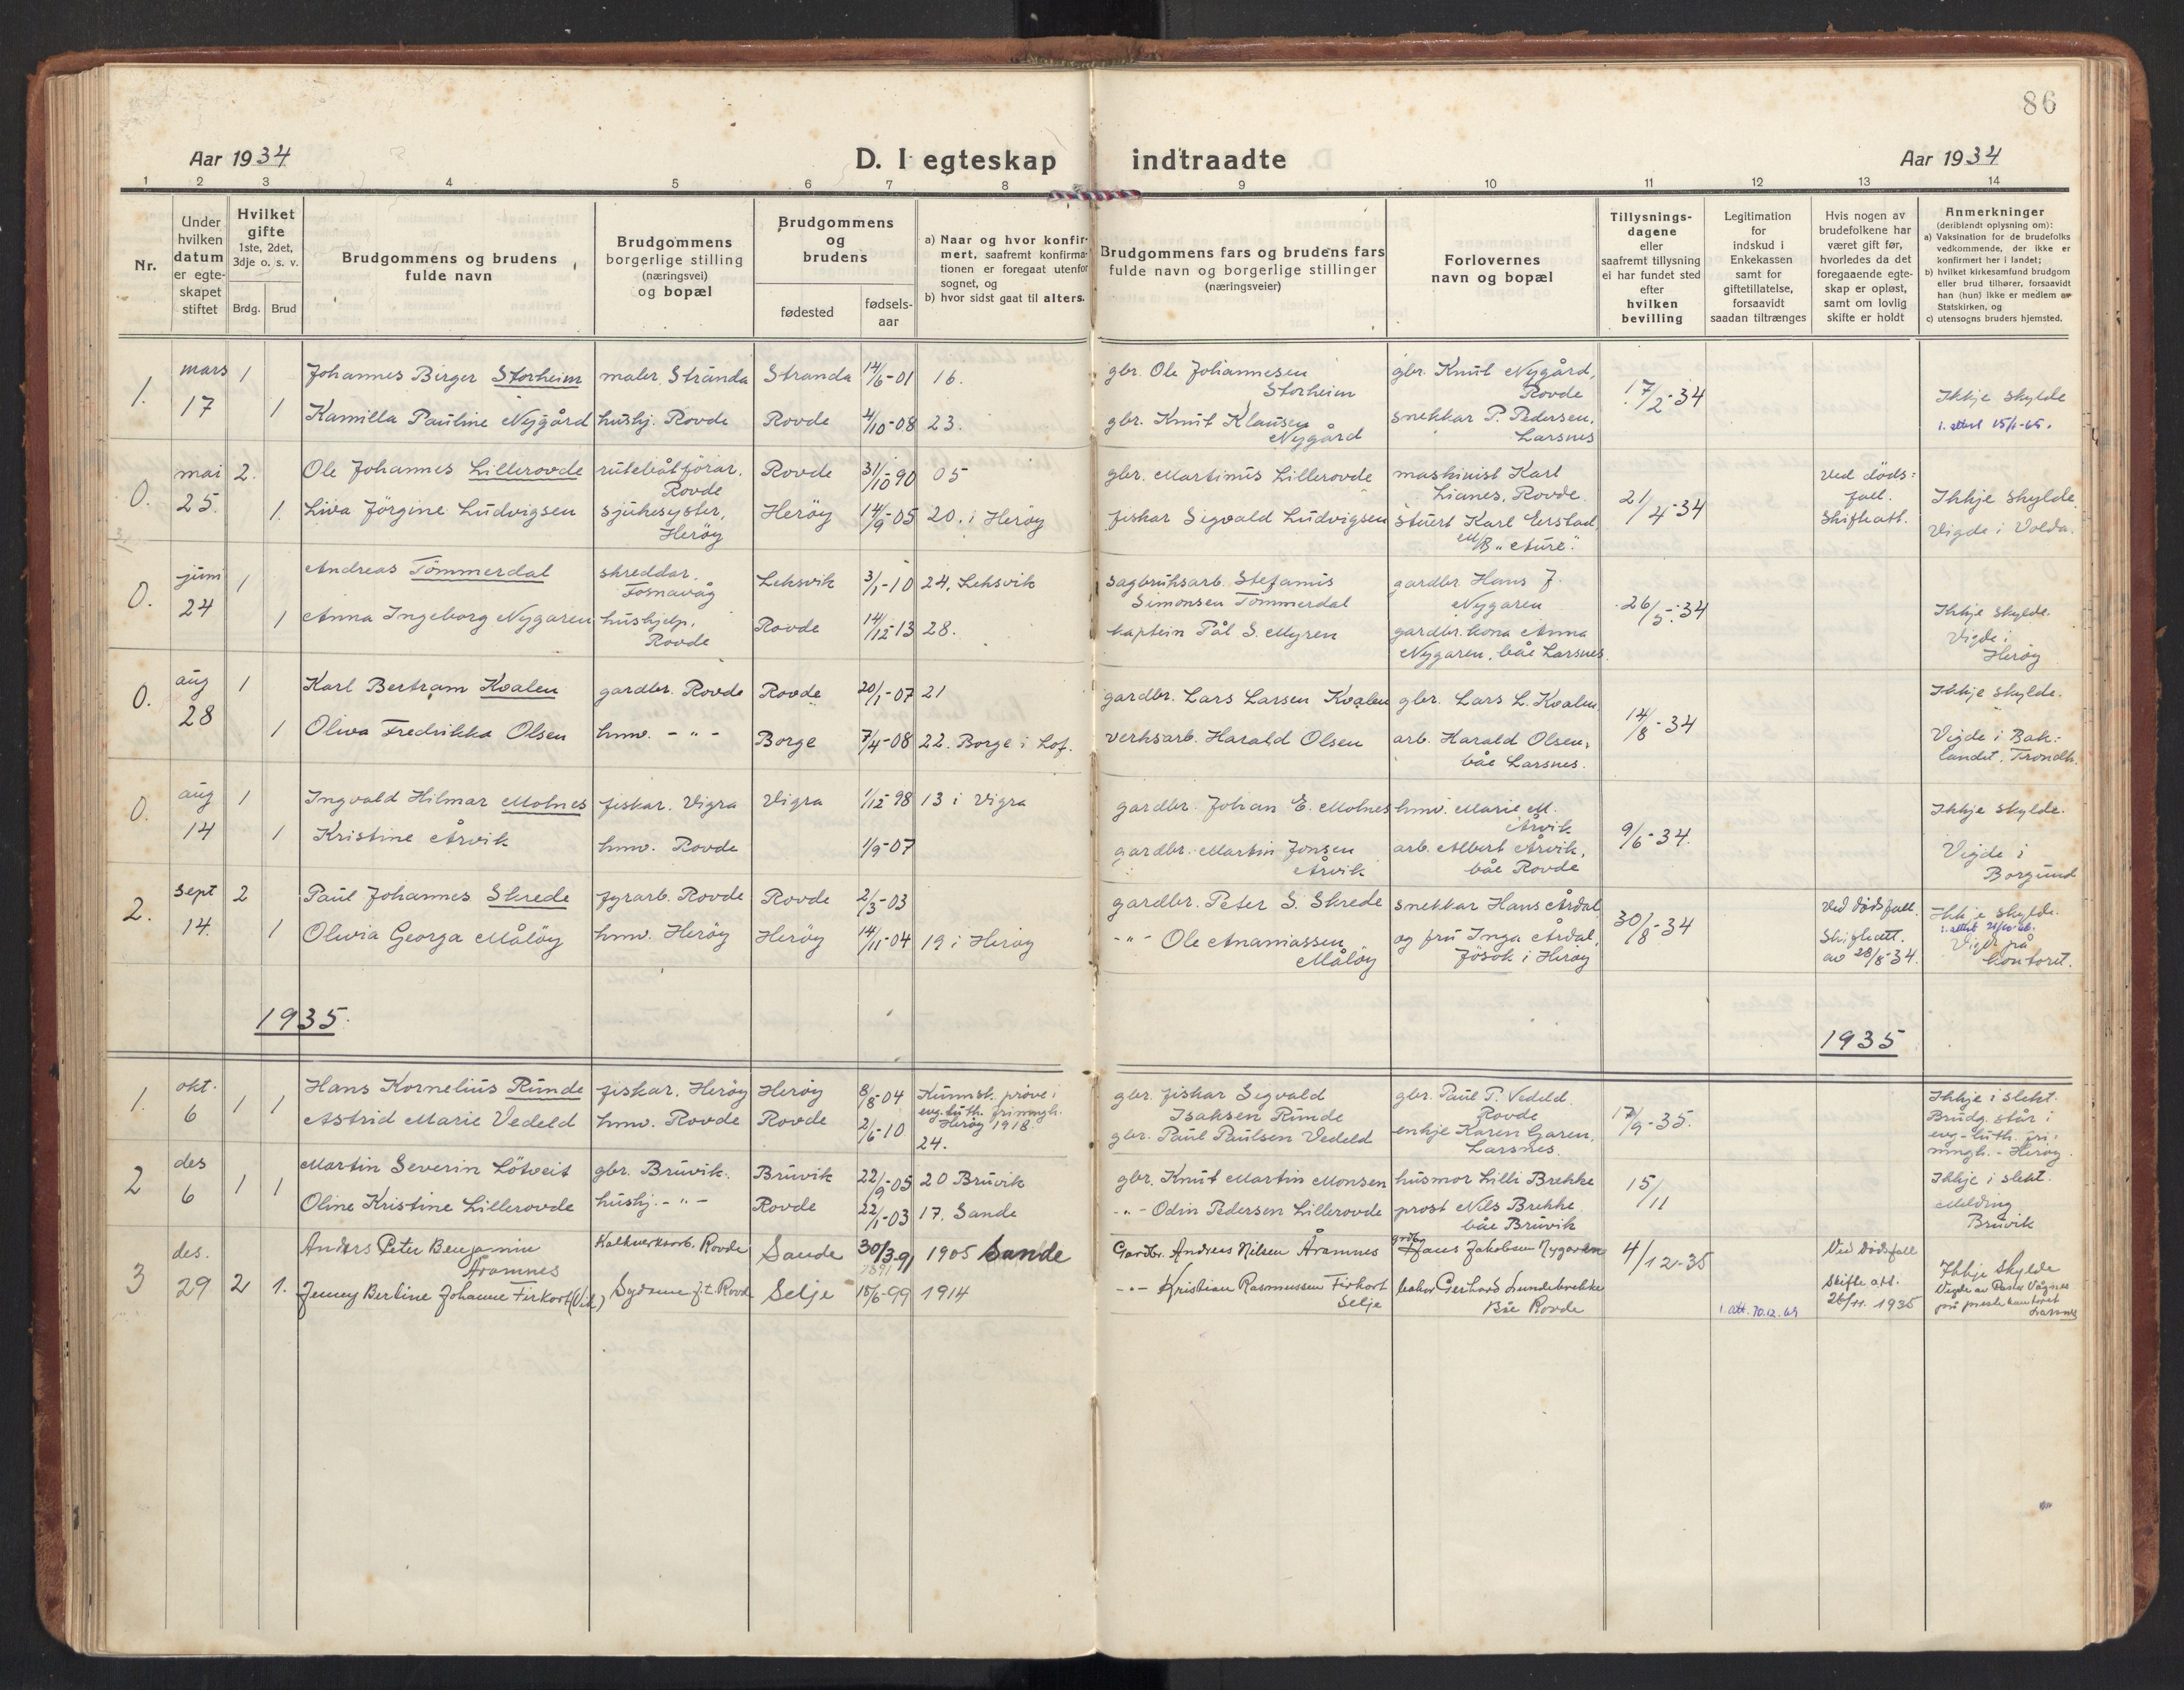 86
Aar 1934
D. I egteskap indtraadte
Aar 1934
1 2 3 4 5 6 7 8 9 10 11 12 13 14
Nr.
Under hvilken datum er egteskapet stiftet
Hvilket gifte 1ste, 2det, 3dje o. s. v.
Brdg. Brud
Brudgommens og brudens fulde navn
Brudgommens borgerlige stilling (næringsvei) og bopæl
Brudgommens og brudens
fødested
fødsels-aar
a) Naar og hvor konfirmert, saafremt konfirmationen er foregaat utenfor sognet, og
b) hvor sidst gaat til alters.
Brudgommens fars og brudens fars fulde navn og borgerlige stillinger (næringsveier)
Forlovernes navn og bopæl
Tillysningsdagene eller saafremt tillysning ei har fundet sted efter hvilken bevilling
Legitimation for indskud i Enkekassen samt for giftetillatelse, forsaavidt saadan tiltrænges
Hvis nogen av brudefolkene har været gift før, hvorledes da det foregaaende egteskap er opløst, samt om lovlig skifte er holdt
Anmerkninger (deriblandt oplysning om):
a) Vaksination for de brudefolks vedkommende, der ikke er konfirmert her i landet;
b) hvilket kirkesamfund brudgom eller brud tilhører, forsaavidt han (hun) ikke er medlem av Statskirken, og
c) utensogns bruders hjemsted.
1. mars 17 1 Johannes Birger Storheim maler, Stranda Stranda 14/6-01 16. gbr. Ole Johannesen Storheim gbr. Knut Nygård, Rovde 17/2-34 Ikkje skylde
1 Kamilla Pauline Nygård hushj. Rovde Rovde 4/10-08 23. gbr. Knut Klausen Nygård snekkar P. Pedersen, Larsnes
0. mai 25. 2. Ole Johannes Lillerovde rutebåtförar, Rovde Rovde 31/10 90 05 gbr. Martinus Lillerovde maskinist Karl Lianes, Rovde. 21/4-34 Ved dödsfall. Skifteatt. Ikkje skylde
1. Liva Jörgine Ludvigsen sjukesyster, Heröy Heröy 14/9-05 20. i Heröy fiskar Sigvald Ludvigsen stuert Karl Erstad, M/B "Aure". Vigde i Volda.
0. juni 24 1 Andreas Tömmerdal skreddar, Fosnavåg Leksvik 3/1-10 24, Leksvik sagbruksarb. Stefanus Simonsen Tömmerdal gardbr Hans J. Nygaren 26/5-34 Ikkje skylde.
1 Anna Ingeborg Nygaren hushjelp, Rovde Rovde 14/12-13 28. kaptein Pål S. Myren gardbr. kona Anna Nygaren, båe Larsnes Vigde i Heröy
0. aug 28 1 Karl Bertram Kvalen gardbr. Rovde Rovde 20/1-07 21 gardbr. Lars Larsen Kvalen gbr. Lars L. Kvalen, 14/8-34 Ikkje skylde.
1 Oliva Fredrikka Olsen hmv. -"- Borge 7/4-08 22. Borge i Lof. verksarb. Harald Olsen arb. Harald Olsen, båe Larsnes. Vigde i Baklandet, Trondh.
0. aug 14 1 Ingvald Hilmar Molnes fiskar, Vigra Vigra 1/12 98 13 i Vigra gardbr. Johan E. Molnes hmv. Marie M. Årvik 9/6-34. Ikkje skylde.
1 Kristine Årvik hmv. Rovde 1/9-07 gardbr. Martin Jonsen Årvik arb. Albert Årvik, båe Rovde Vigde i Borgund
2. sept 14. 2 Paul Johannes Skrede fyrarb. Rovde Rovde 2/3-03 gardbr. Peter S. Skrede snekkar Hans Årdal 30/8-34 Ved dödsfall. Skifteatt. av 28/8-34. Ikkje skylde.
1 Olivia Georga Målöy hmv. Heröy Heröy 14/11-04 19 i Heröy -"- Ole Ananiassen Målöy og fru Inga Årdal, Jösok i Heröy Vigde på kontoret.
1935.
1935
1. okt. 6 1 1 Hans Kornelius Runde fiskar, Heröy Heröy 8/8-04 Kunnsk. pröve i evg. luth. frimengh. Heröy 1918. gbr. fiskar Segvald Isaksen Runde gbr. Paul P. Vedeld. Rovde 17/9-35. Ikkje i slekt. Brudg. står i evg-luth. frimengh. - Heröy.
Astrid Marie Vedeld hmv. Rovde Rovde 2/6-10 24. gbr. Paul Paulsen Vedeld enkje Karen Garen, Larsnes.
2 des 6 1 1 Martin Severin Lötveit gbr. Bruvik. Bruvik 22/9-05 20 Bruvik gbr. Knut Martin Monsen husmor Lilli Brekke 15/11 Ikkje i slekt.
Oline Kristine Lillerovde hushj. -"- Rovde 22/1-03 17. Sande -"- Odin Pedersen Lillerovde prost Nils Brekke båe Bruvik Melding Bruvik
3 des. 29 2 1. Anders Peter Benjamin Aramnes Kalkverksarb. Rovde Sande 30/3-91 1891 1905 Sande Gardbr. Andreas Nilsen Åramnes grdbr Hans Jakobsen Nygaren 4/12-35 Ved Dødsfall Skifte att. 26/11. 1935 Ikkje skylde
Jenny Bertine Johanne Firkort Sydame f.t. Rovde Selje 18/6-99 1914 -"- Kristian Rasmussen Firkort Selje bakar Gerhard Lundebrekke Båe Rovde 1. att. 10.12.69 Vigde av Pastor Vågnes på prestekontoret Larsnes